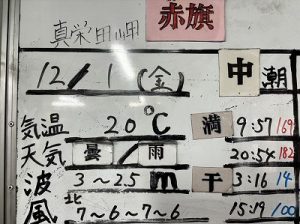 真栄田岬 赤旗
12/1(金) 中潮
気温 20℃ 満 9:57 169
天気 曇/雨 20:54 182
波 3～2.5m 干 3:16 14
風 北 7～6～7～6 15:19 100